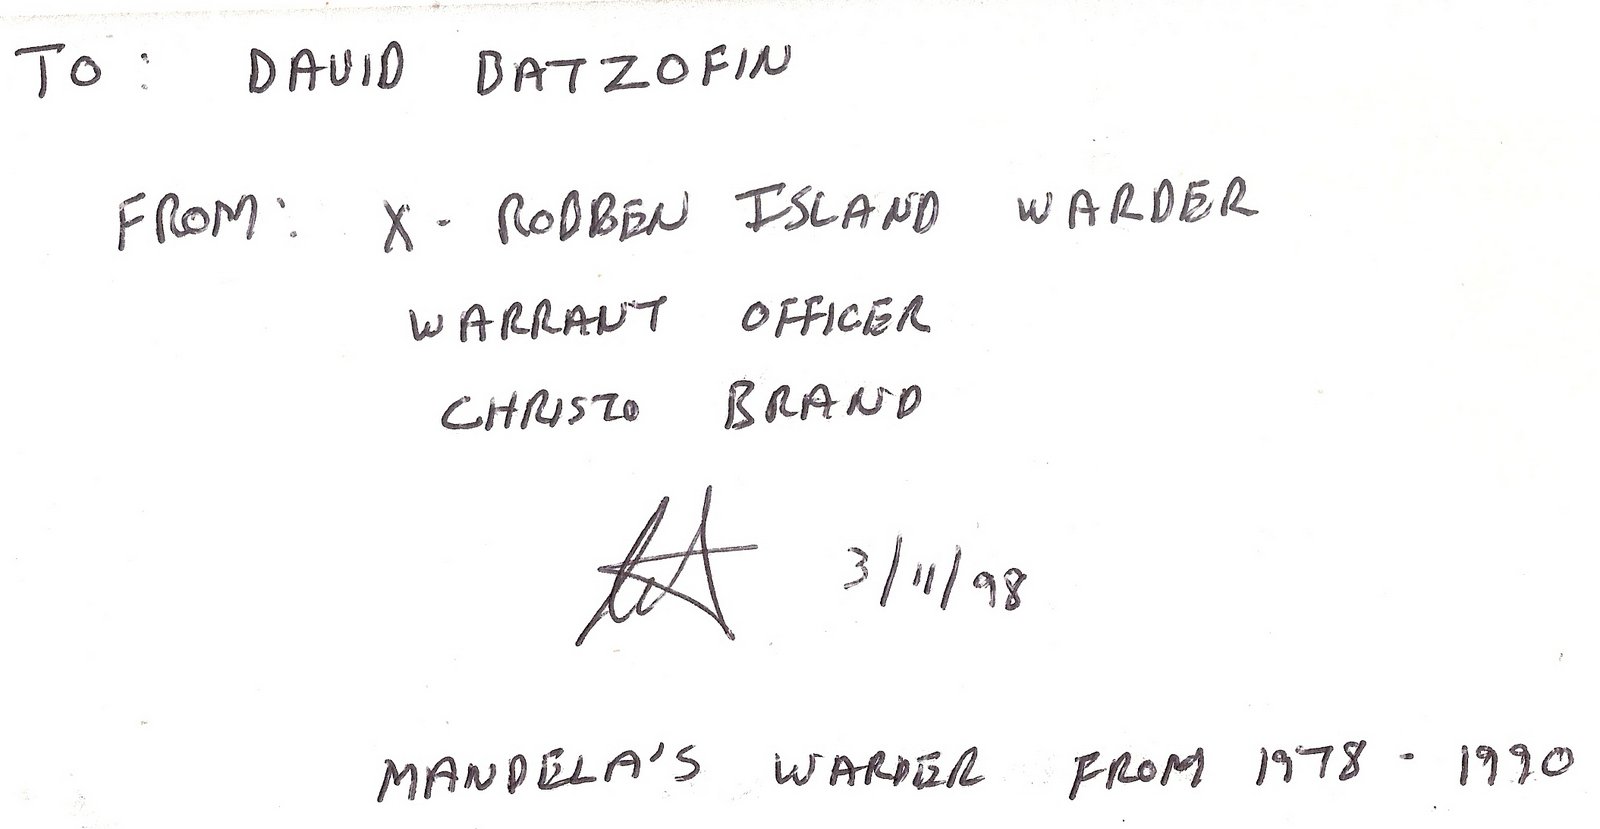 TO: DAVID BATZOFIN
FROM: X-ROBBEN ISLAND WARDER
WARRANT OFFICER
CHRISTO BRAND
3/11/98
MANDELA'S WARDER FROM 1978-1990